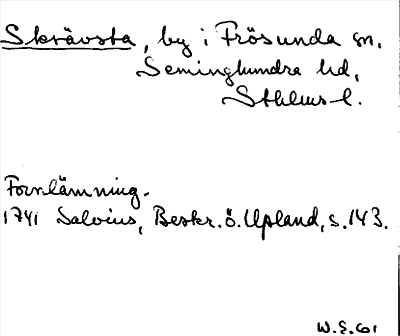 Skrävsta, by i Frösunda sn,
Seminghundra hd,
Sthlms l.
Fornlämning.
1741 Salvius, Beskr. ö. Upland, s. 143.
W.E. 61